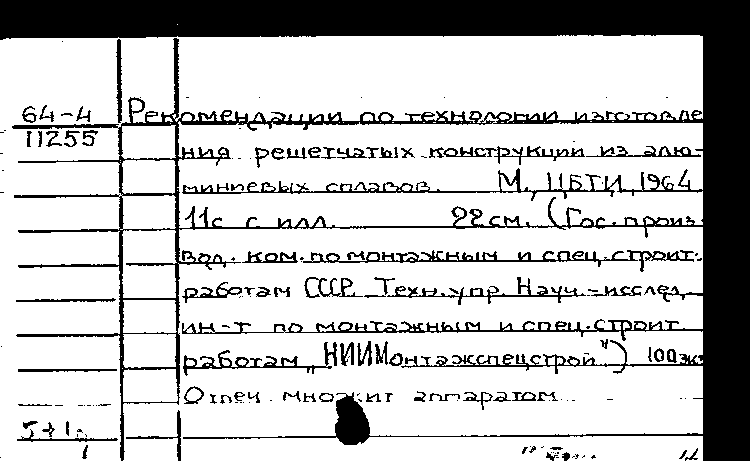 64-4 Рекомендации по технологии изготовле
11255
ния решетчатых конструкций из алю-
миниевых сплавов. М., ЦБТИ, 1964
11с с илл. 22 см. (Гос. произ-
вод. ком. по монтажным и спец. строит.
работам СССР. Техн. упр. Науч.-исслед.
ин-т по монтажным и спец. строит.
работам „НИИМонтажспецстрой") 100 экз
Отпеч. множит аппаратом